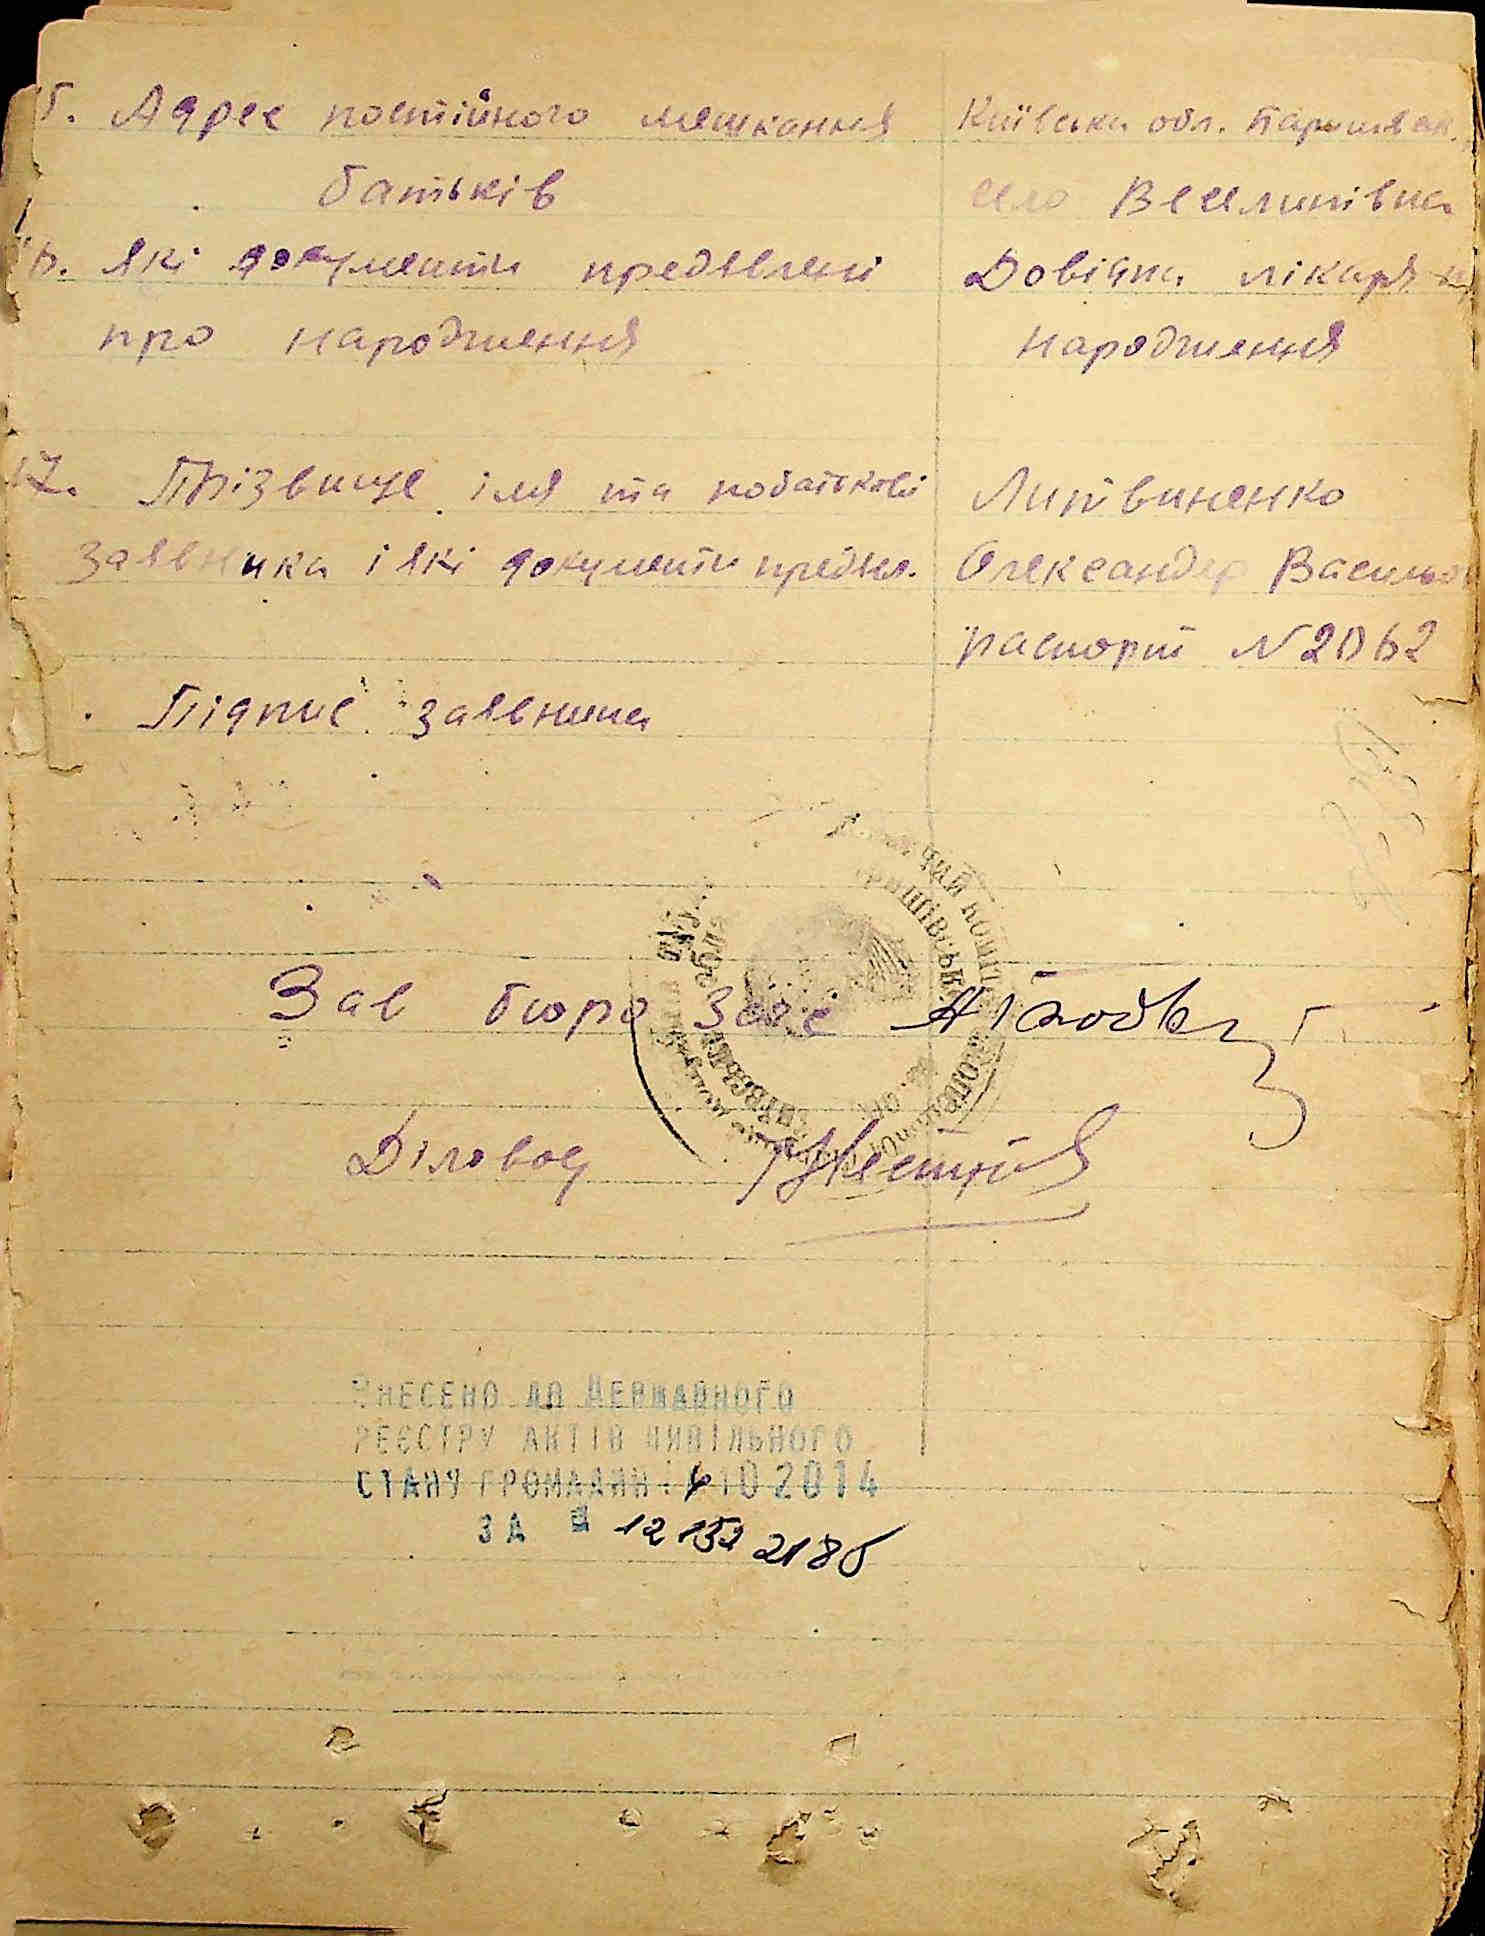 15. Адрес постійного мешкання
батьків
Київська обл. Баришівськ.
село Веселинівка
16. які документи предявлені
про народження
Довідка лікаря
народження
17. Прізвище імя та побатькові
заявника і які документи предяв.
Литвиненко
Олександер Васильо
паспорт N 2062
Підпис заявника
Зав бюро Загс
Діловод
ВНЕСЕНО ДО ДЕРЖАВНОГО
РЕЄСТРУ АКТІВ ЦИВІЛЬНОГО
СТАНУ ГРОМАДЯН 10 2014
ЗА № 12 152 2186